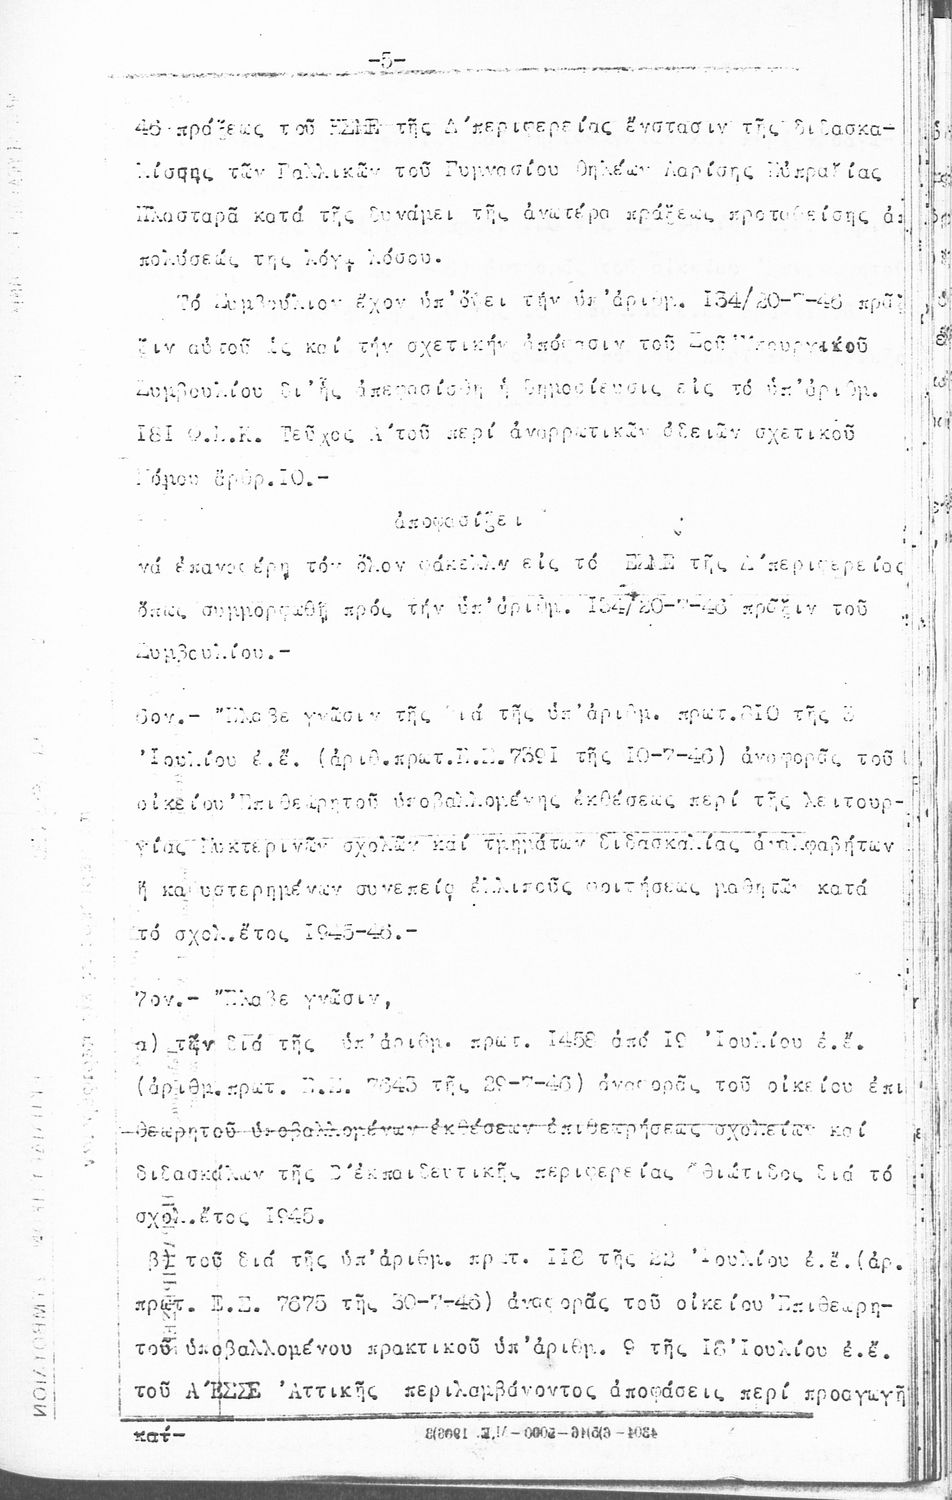 -5-
46 πράξεως τοῦ ΕΣΜΕ τῆς Δ΄περιφερείας ἔνστασιν τῆς διδασκα-
λίσσης τῶν Γαλλικῶν τοῦ Γυμνασίου Θηλέων Λαρίσης Εὐπραξίας
Πλασταρᾶ κατά τῆς δυνάμει τῆς ἀνωτέρω πράξεως προταθείσης ἀ
πολύσεώς της λόγῳ λόσου.
Τό Συμβούλιον ἔχον ὑπ'ὄψει τήν ὑπ'ἀριθμ. I34/20-7-46 πρᾶ
ξιν αὐτοῦ ὡς καί τήν σχετικήν ἀπόφασιν τοῦ Ὑπουργικοῦ
Συμβουλίου δι'ἧς ἀπεφασίσθη ἡ δημοσίευσις εἰς τό ὑπ'ἀριθμ.
I8I Φ.Ε.Κ. Τεῦχος Α΄τοῦ περί ἀναρρωτικῶν ἀδειῶν σχετικοῦ
Νόμου ἄρθρ.IO.-
ἀποφασίζει
νά ἐπαναφέρῃ τόν ὅλον φάκελλν εἰς τό ΕΣΔΕ τῆς Δ΄περιφερείας
ὅπως συμμορφωθῇ πρός τήν ὑπ'ἀριθμ. I34/20-7-46 πρᾶξιν τοῦ
Συμβουλίου.-
6ον.- "Ελαβε γνῶσιν τῆς διά τῆς ὑπ'ἀριθμ. πρωτ.8IO τῆς 3
'Ιουλίου ἐ.ἔ. (ἀριθ.πρωτ.Ε.Σ.739I τῆς IO-7-46) ἀναφορᾶς τοῦ
οἰκείου'Επιθεωρητοῦ ὑποβαλλομένης ἐκθέσεως περί τῆς λειτουρ-
γίας Νυκτερινῶν σχολῶν καί τμημάτων διδασκαλίας ἀναλφαβήτων
ἤ καθυστερημένων συνεπείᾳ ἐλλιποῦς φοιτήσεως μαθητῶν κατά
τό σχολ.ἔτος I945-46.-
7ον.- "Ελαβε γνῶσιν,
α) τῶν διά τῆς ὑπ'ἀριθμ. πρωτ. I458 ἀπό I9 'Ιουλίου ἐ.ἔ.
(ἀριθμ.πρωτ. Ε.Σ. 7643 τῆς 29-7-46) ἀναφορᾶς τοῦ οἰκείου ἐπι
θεωρητοῦ ὑποβαλλομένων ἐκθέσεων ἐπιθεωρήσεως σχολείων καί
διδασκάλων τῆς Β΄ἐκπαιδευτικῆς περιφερείας Φθιώτιδος διά τό
σχολ.ἔτος I945.
β) τοῦ διά τῆς ὑπ'ἀριθμ. πρωτ. II8 τῆς 22 'Ιουλίου ἐ.ἔ.(ἀρ.
πρωτ. Ε.Σ. 7675 τῆς 30-7-46) ἀναφορᾶς τοῦ οἰκείου'Επιθεωρη-
τοῦ ὑποβαλλομένου πρακτικοῦ ὑπ'ἀριθμ. 9 τῆς I8'Ιουλίου ἐ.ἔ.
τοῦ Α΄ΕΣΣΕ 'Αττικῆς περιλαμβάνοντος ἀποφάσεις περί προαγωγῆ
καί-